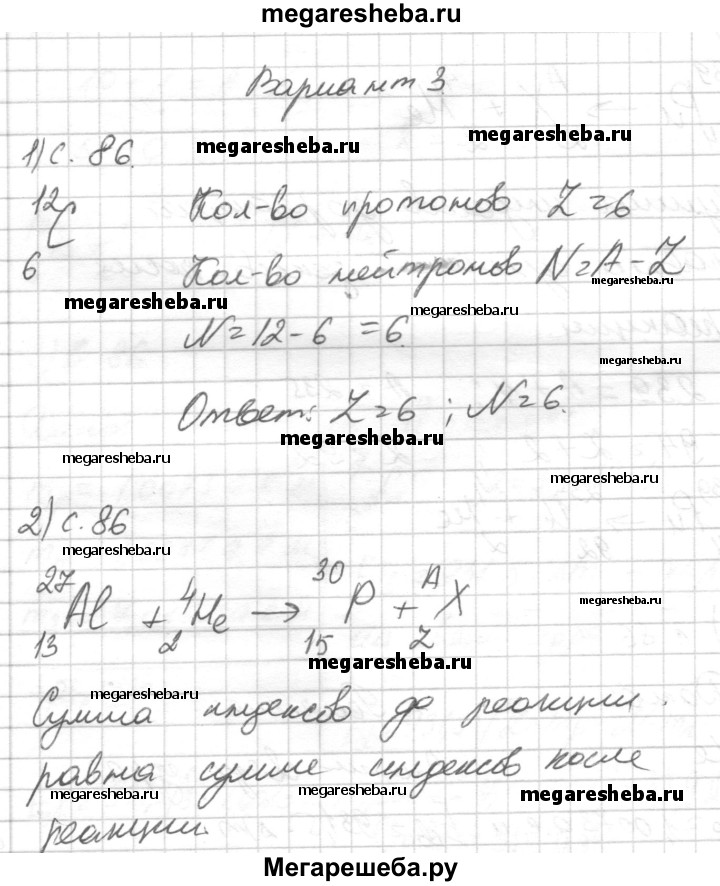 megaresheba.ru
Вариант 3
megaresheba.ru
1) с. 86.
megaresheba.ru
12
C
6
Кол-во протонов Z=6
Кол-во нейтронов N=A-Z
megaresheba.ru
megaresheba.ru
megaresheba.ru
N=12-6=6.
megaresheba.ru
Ответ: Z=6; N=6.
megaresheba.ru
megaresheba.ru
megaresheba.ru
2) с. 86
megaresheba.ru
27 4 30 A
Al + He → P + X
13 2 15 Z
megaresheba.ru
megaresheba.ru
megaresheba.ru
Сумма индексов до реакции
равна сумме индексов после
megaresheba.ru
megaresheba.ru
megaresheba.ru
реакции.
Мегарешеба.ру